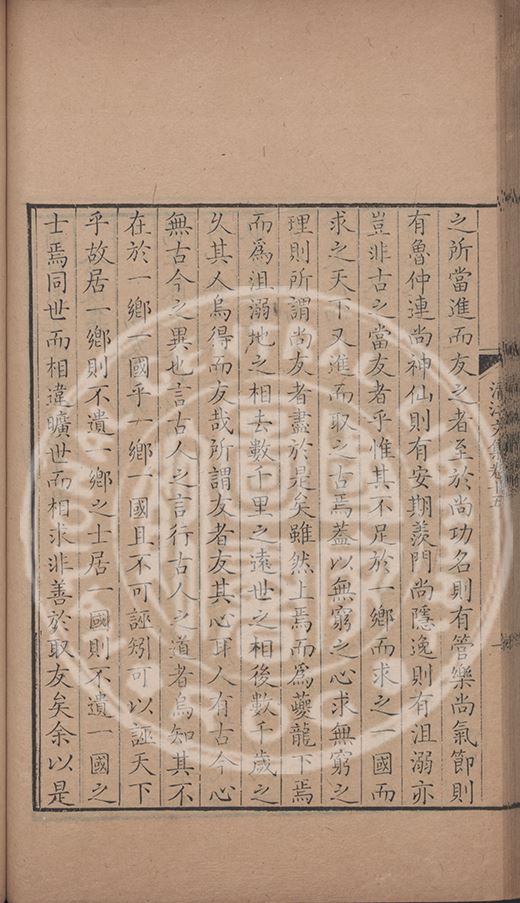 之所當進而友之者至於尚功名則有管樂尚氣節則
有魯仲連尚神仙則有安期羨門尚隱逸則有沮溺亦
豈非古之當友者乎惟其不足於一鄉而求之一國而
求之天下又進而取之古焉蓋以無窮之心求無窮之
理則所謂尚友者盡於是矣雖然上焉而爲夔龍下焉
而爲沮溺地之相去數千里之遠世之相後數千歲之
久其人烏得而友哉所謂友者友其心耳人有古今心
無古今之異也言古人之言行古人之道者烏知其不
在於一鄉一國乎一鄉一國且不可誣矧可以誣天下
乎故居一鄉則不遺一鄉之士居一國則不遺一國之
士焉同世而相違曠世而相求非善於取友矣余以是